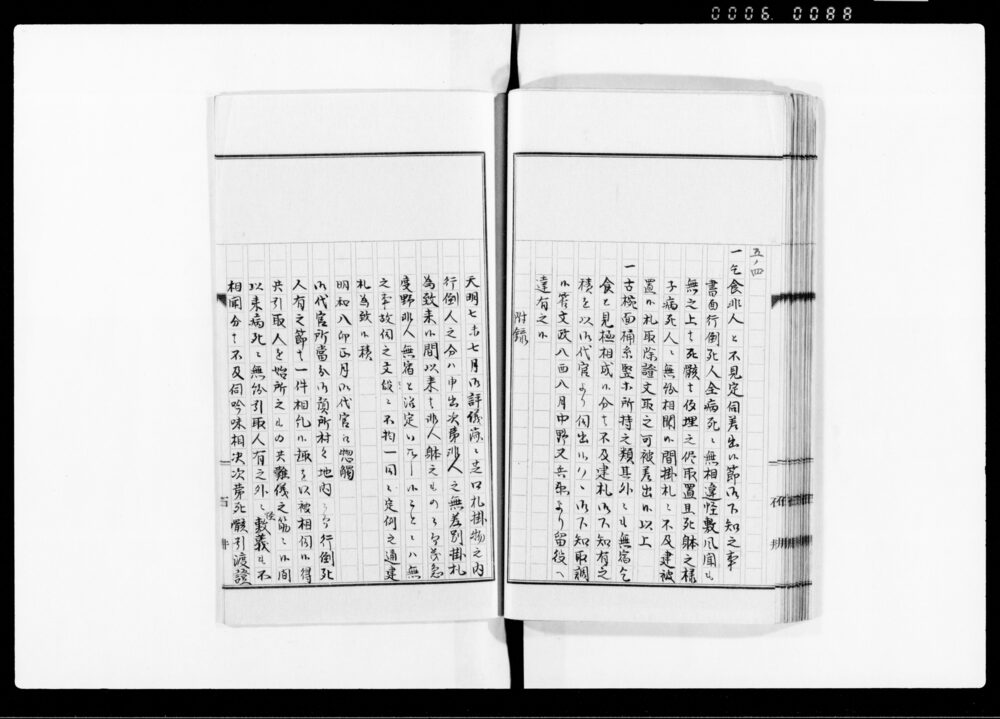 0006. 0088
五ノ四
一乞食非人と不見定伺差出候節御下知之事
書面行倒死人全病死ニ無相違怪敷風聞も
無之上は死骸は仮埋之侭取置且死躰之様
子病死人ニ無紛相聞候間掛札ニ不及建被
置候札取除證文取之可被差出候以上
一古椀面桶杖所持之類其外ニも無宿乞
食と見極相成候分は不及建札御下知有之
積を以御代官より伺出候ハヽ御下知取調
候筈文政八酉八月中野又兵衛より留役へ
達有之候
附録
天明七未七月御評儀済ニ建口札掛物之内
行倒人之分ハ申出次第非人之無差別掛札
為致来候間以来は非人躰之もの
度野非人無宿と治定いたし候ハ無
之事故伺之文段ニ不拘一同ニ定例之通建
札為致候積
明和八卯正月御代官江惣触
御代官所當分御預所村々地内ニ而行倒死
人有之節は一件相糺候趣を以被相伺候得
共引取人を始所之もの共難儀之筋ニ候間
以来病死ニ無紛引取人有之外ニ疑敷義も不
相聞分は不及伺吟味相決次第死骸引渡證